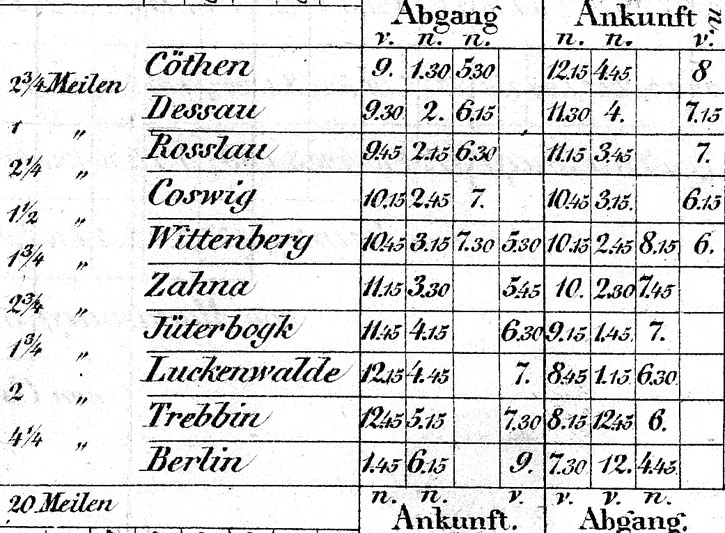 Abgang Ankunft
v. n. n. n. n. v.
Cöthen 9. 1.30 5.30 12.15 4.45 8
2¾ Meilen
Dessau 9.30 2. 6.15 11.30 4. 7.15
1 „
Rosslau 9.45 2.15 6.30 11.15 3.45 7.
2¼ „
Coswig 10.15 2.45 7. 10.45 3.15. 6.15
1½ „
Wittenberg 10.45 3.15 7.30 5.30 10.15 2.45 8.15 6.
1¾ „
Zahna 11.15 3.30 5.45 10. 2.30 7.45
2¾ „
Jüterbogk 11.45 4.15 6.30 9.15 1.45 7.
1¾ „
Luckenwalde 12.15 4.45 7. 8.45 1.15 6.30
2 „
Trebbin 12.45 5.15 7.30 8.15 12.45 6.
4¼ „
Berlin 1.45 6.15 9. 7.30 12. 4.45
20 Meilen n. n. v. v. v. n.
Ankunft. Abgang.